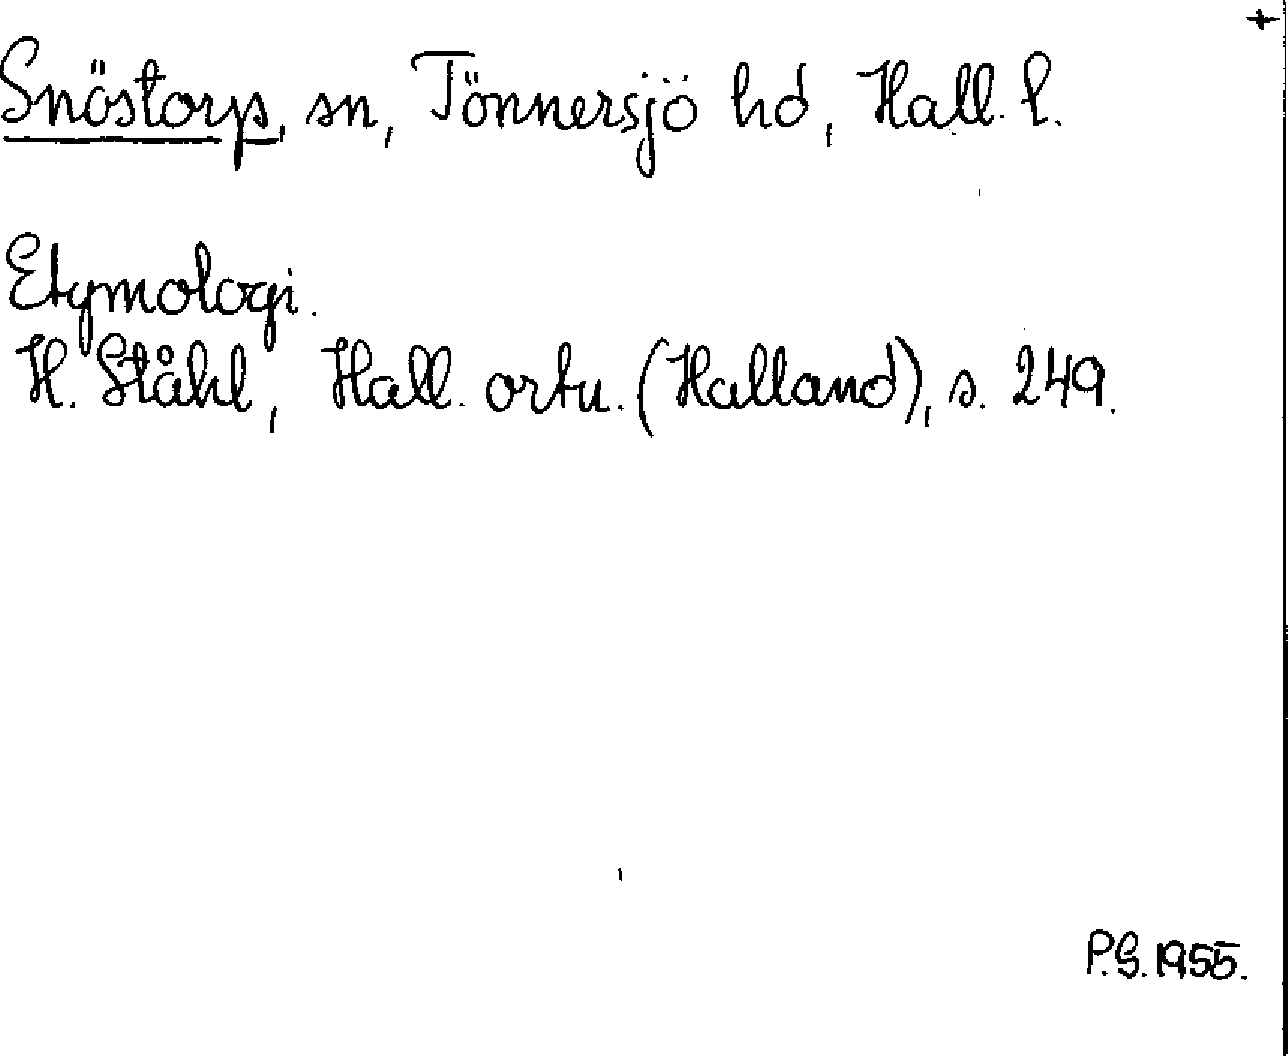 +
Snöstorps, sn, Tönnersjö hd, Hall. l.
Etymologi.
H. Ståhl, Hall. ortn. (Halland), s. 249.
P.G. 1955.